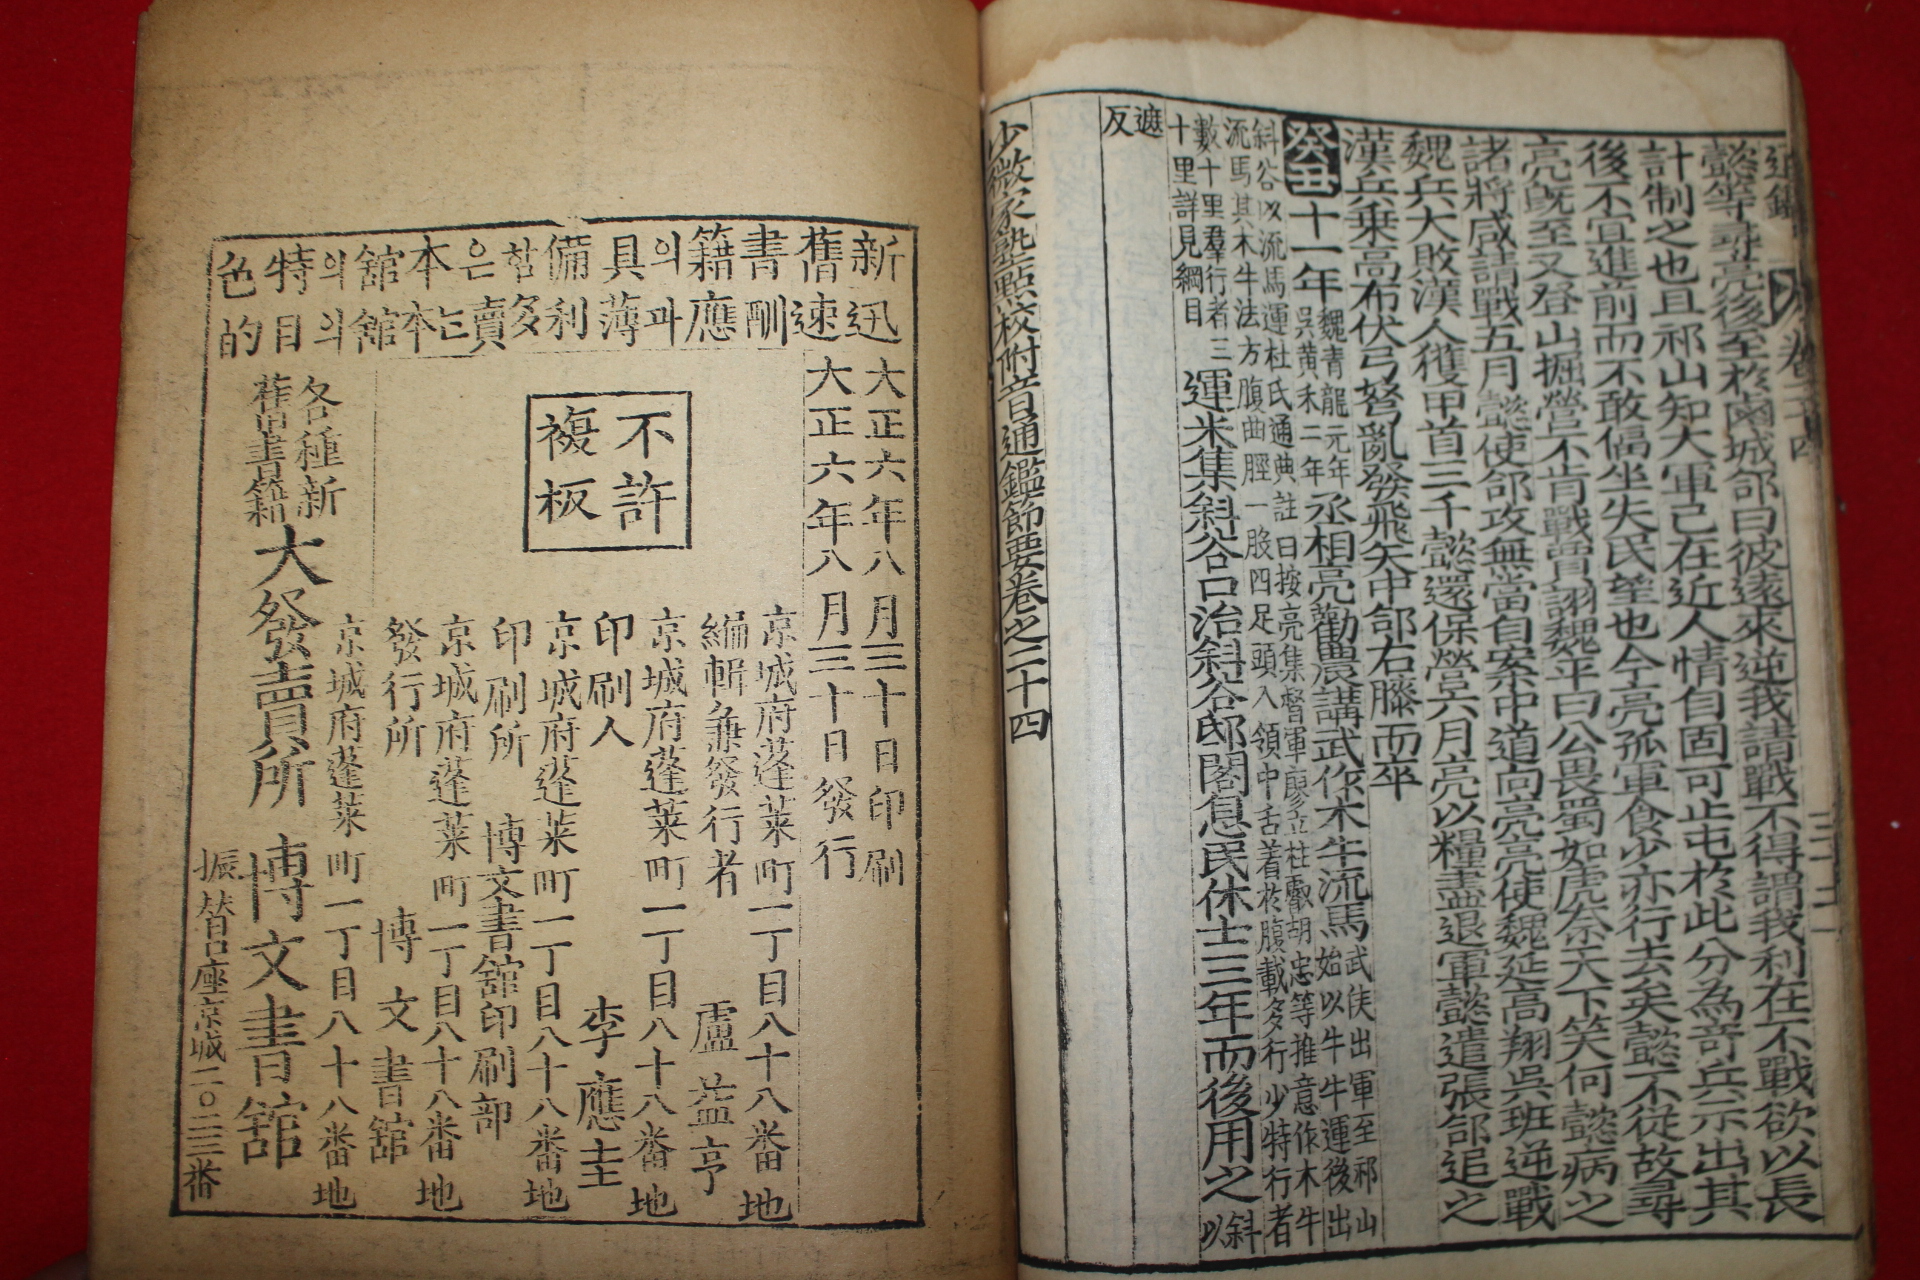 懿等尋亮後至於鹵城郃曰彼遠來逆我請戰不得謂我利在不戰欲以長
計制之也且祁山知大軍已在近人情自固可止屯於此分為奇兵示出其
後不宜進前而不敢偪坐失民望也今亮孤軍食少亦行去矣懿不從故尋
亮旣至又登山掘營不肯戰賈詡魏平曰公畏蜀如虎奈天下笑何懿病之
諸將咸請戰五月懿使郃攻無當自案中道向亮亮使魏延高翔吳班逆戰
魏兵大敗漢人獲甲首三千懿還保營六月亮以糧盡退軍懿遣張郃追之
漢兵乗高布伏弓弩亂發飛矢中郃右膝而卒
癸丑十一年魏青龍元年吳黄禾二年丞相亮勸農講武作木牛流馬武侯出軍至祁山始以牛牛運後出
斜谷以流馬運杜氏通典註曰按亮集督軍廖立杜叡胡忠等推意作木牛
流馬其木牛法方腹曲脛一股四足頭入領中舌着於腹載多行少特行者
數十里羣行者三十里詳見綱目運米集斜谷口治斜谷邸閣息民休士三年而後用之斜以
遮反
少微家塾點校附音通鑑節要卷之二十四
新舊書籍의具備함은本舘의特色
迅速酬應과薄利多賣는本舘의目的
大正六年八月三十日印刷
大正六年八月三十日發行
不許複板
京城府蓬萊町一丁目八十八番地
編輯兼發行者 盧益亨
京城府蓬萊町一丁目八十八番地
印刷人 李應圭
京城府蓬萊町一丁目八十八番地
印刷所 博文書舘印刷部
京城府蓬萊町一丁目八十八番地
發行所 博文書舘
京城府蓬萊町一丁目八十八番地
各種新舊書籍大發賣所 博文書舘
振替口座京城二〇二三番